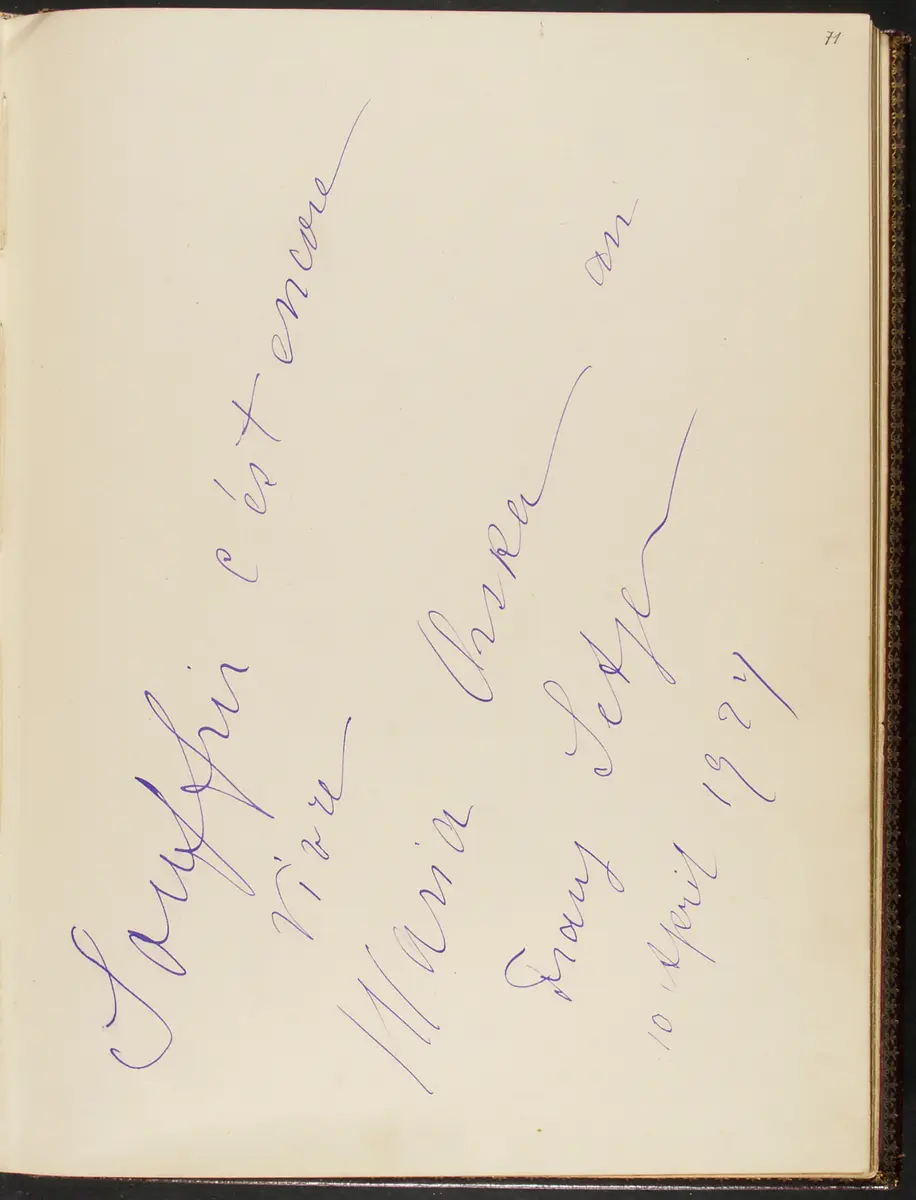 71
Souffrir c'ést encore
vivre
Maria Orska an
Franz Setzer
10 April 1924